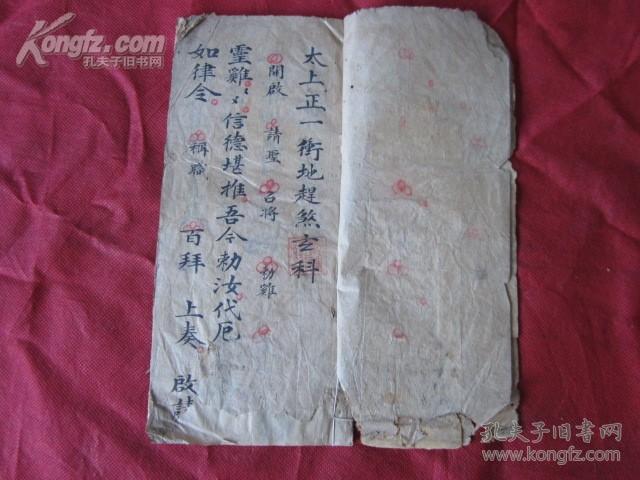 太上正一衛地趕煞玄科
開啟 請聖 召將 勅雞
靈雞〻信德堪推吾今勅汝代厄
如律令 稱職 百拜 上奏 啟
Kongfz.com
孔夫子旧书网
孔夫子旧书网
www.kongfz.com